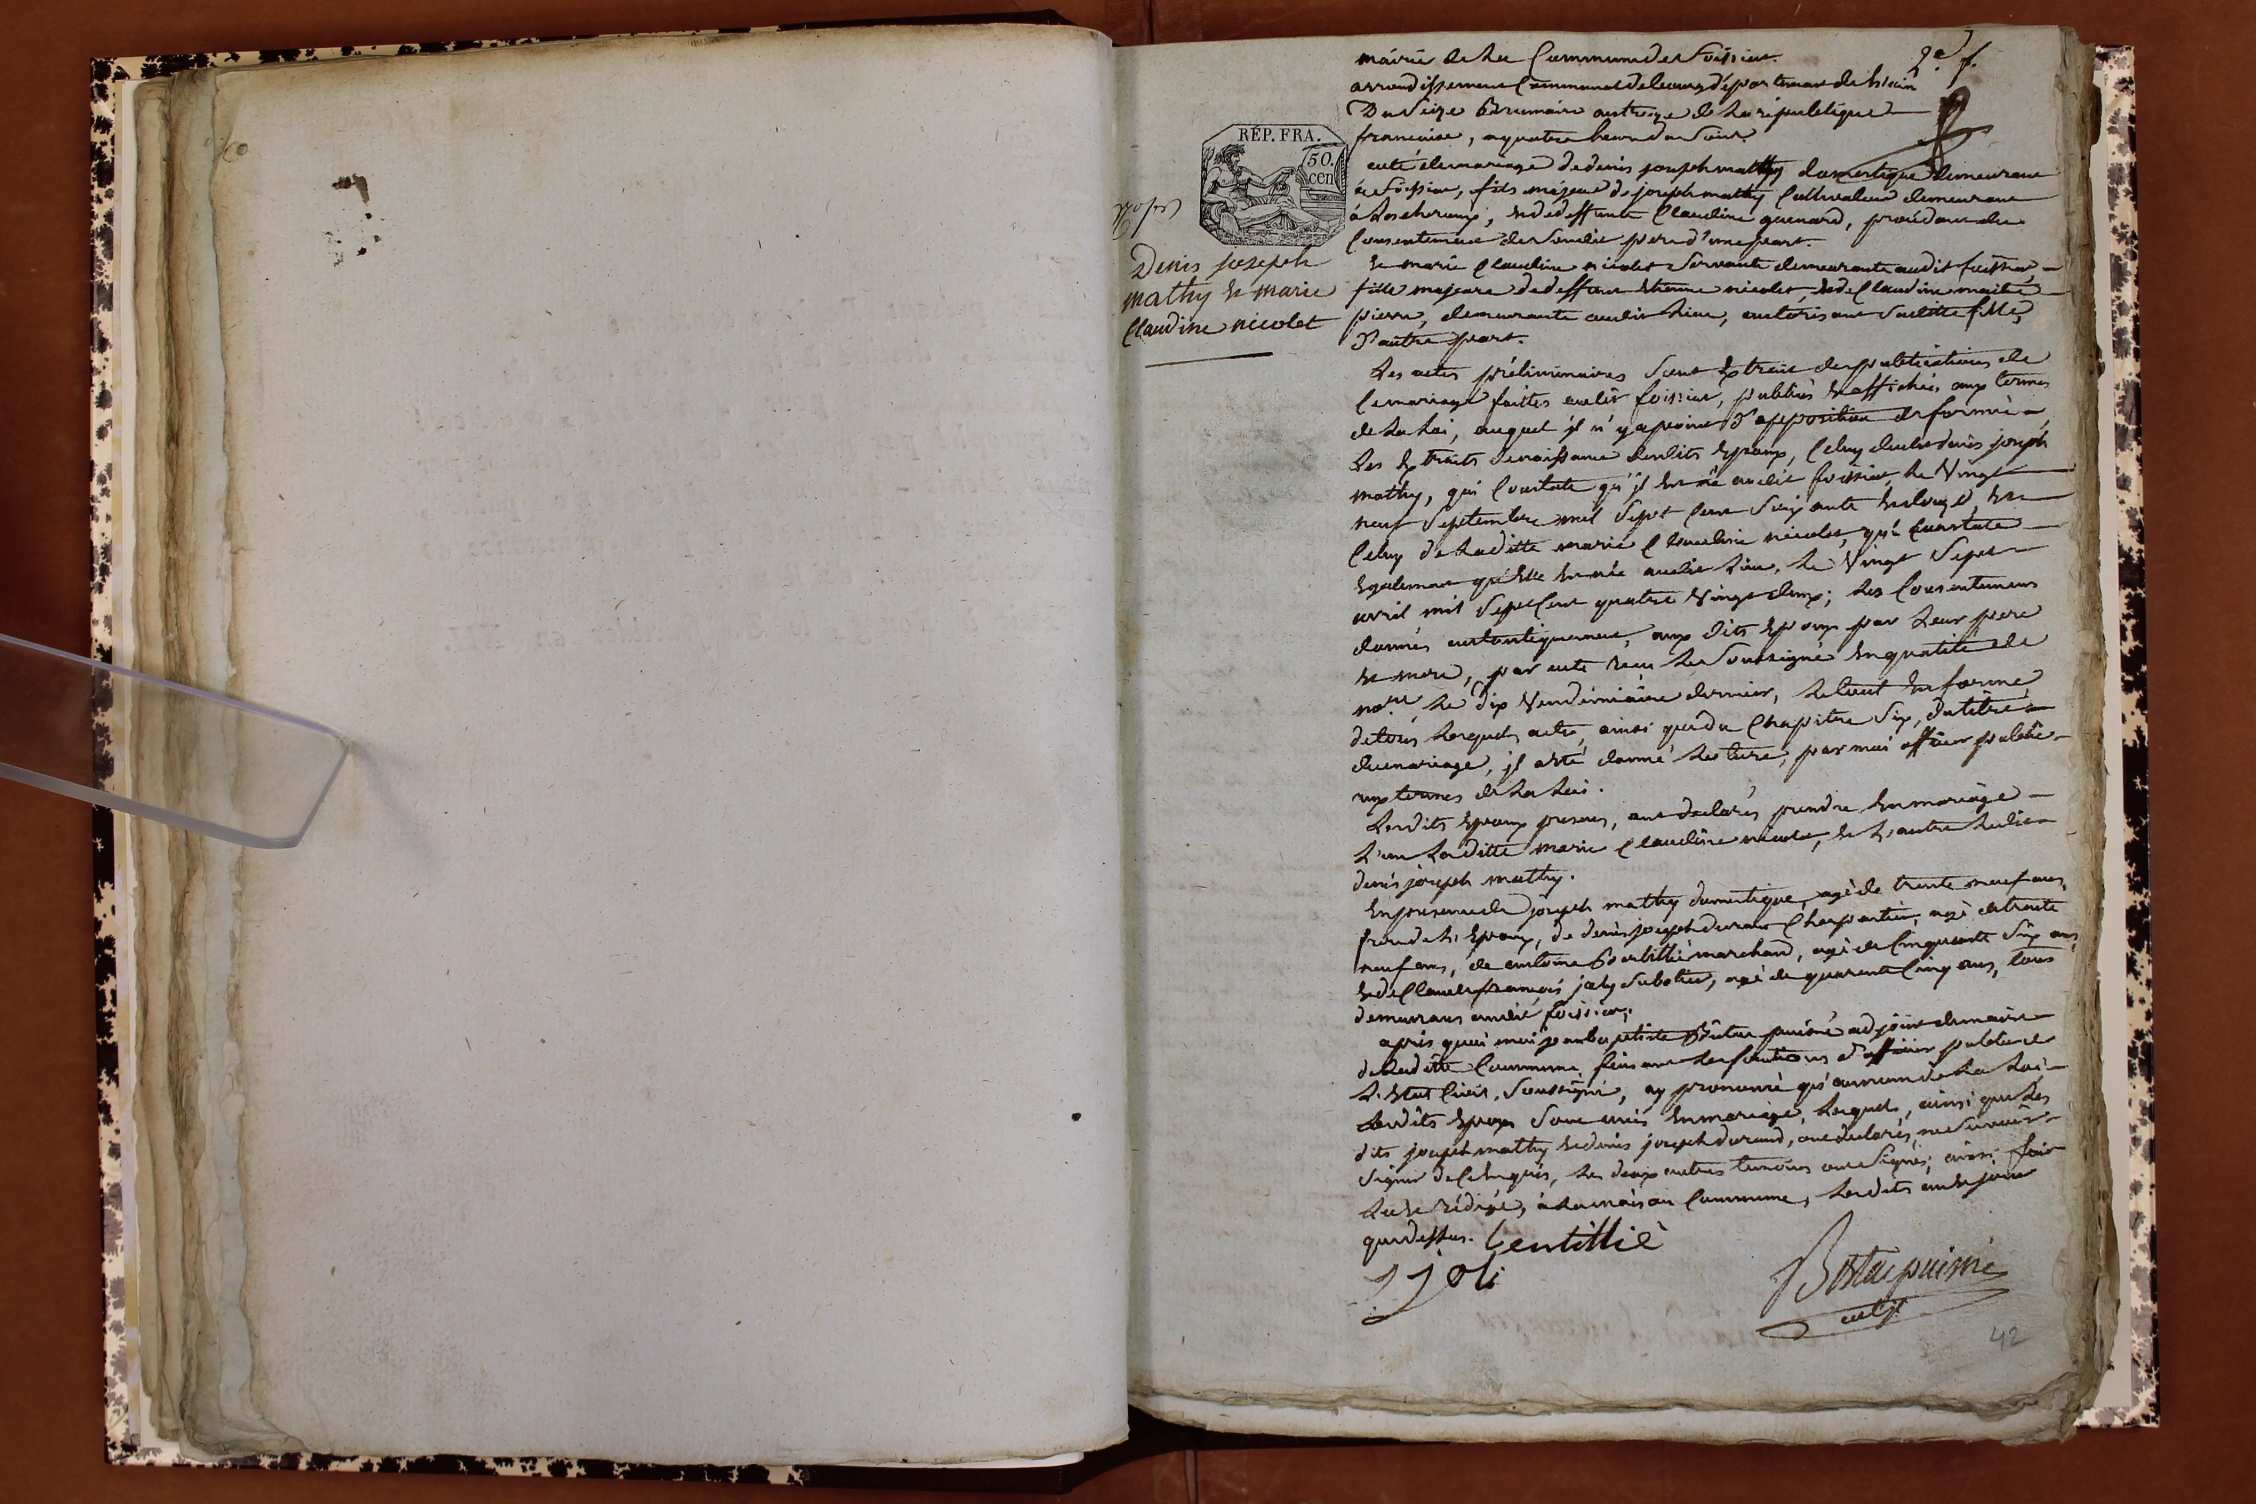 mairie de la Commune de foissiat.
2.e f.
arrondissement Communal de bourg département de l'ain
Du Seize Brumaire an treize de la république
française, a quatre heures du Soir.
acte de mariage de denis joseph mathy domestique demeurant
à foissiat, fils majeur de joseph mathy Cultivateur demeurant
à lescheroux, et de deffunte Claudine guenard, procédant du
Consentement de Soudit pere d'une part.
et marie Claudine nicolet Servante demeurante audit foissiat,
fille majeure de deffunt Etienne nicolet, et de Claudine maitre
pierre, demeurante audit lieu, autorisant Saditte fille,
d'autre part.
RÉP. FRA.
50.
cen
Denis joseph
mathy et marie
Claudine nicolet
Les actes préliminaires sont Extrait des publications de
ce mariage faittes audit foissiat, publiés et affichés, aux termes
de la loi, auquel il n'y a point d'apposition de formée
les Extraits de naissance desdits Epoux, Celuy dudit denis joseph
mathy, qui Constate qu'il est né audit foissiat, le Vingt
neuf Septembre mil Sept Cent Soixante et douze, et
Celuy de laditte marie Claudine nicolet, qui Constate
Egalement qu'Elle est née audit lieu, le Vingt Sept
avril mil Sept Cent quatre Vingt deux; les Consentemens
donnés autentiquement, aux dits Epoux par leur pere
et mere, par acte reçu le Soussigné En qualité de
no.re, le dix Vendémiaire dernier, le tout En forme
de tous lesquels actes, ainsi que du Chapitre Six, du titre
du mariage, il a été donné lecture, par moi officier public
aux termes de la loi.
Lesdits Epoux presens, ont declarés prendre En mariage
l'un laditte marie Claudine nicolet, et l'autre ledit
denis joseph mathy.
En presence de joseph mathy domestique, agé de trente neuf ans,
frere de l'Epoux, de denis joseph durand Charpantier, agé de trente
neuf ans, de antoine marchand, agé de Cinquante Six ans,
et de Claude françois joly Sabotier, agé de quarante Cinq ans, tous
demeurans audit foissiat.
après quoi moi jean baptiste puisné adjoint du maire
de laditte Commune faisant les fonctions d'officier public de
l'Etat Civil, Soussigné, ay prononcé qu'au nom de la loi
lesdits Epoux Sont unis En mariage, lesquels, ainsi que les
dits joseph mathy et denis joseph durand, ont declarés ne Savoir
Signer de ce Enquis, les deux autres temoins ont Signés, ainsi fait
lu et rédigé, à la maison Commune, lesdits an et jour
que dessus. Lentillié
joli
puisné
adjt
42